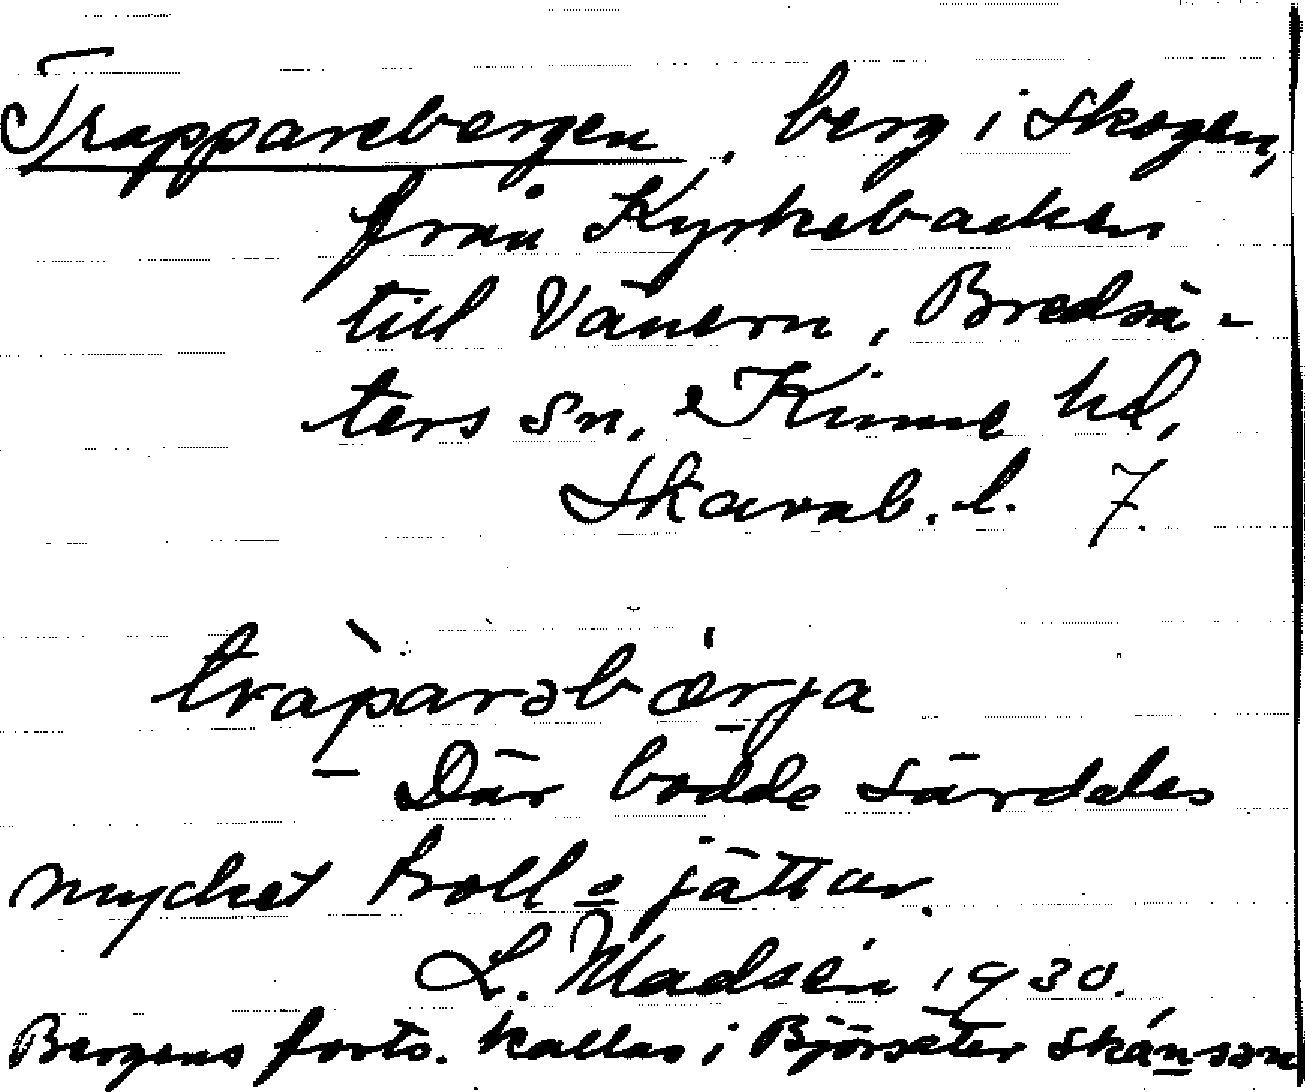 Trapparebergen, berg i skogen,
från Kyrkebacken
till Vänern, Bredsä-
ters sn, Kinne hd,
Skarab. l. 7.
tràparəbærja
Där bodde särdeles
mycket troll o jättar.
L. Madsén 1930.
Bergens forts. kallas i Björsäter skánsən